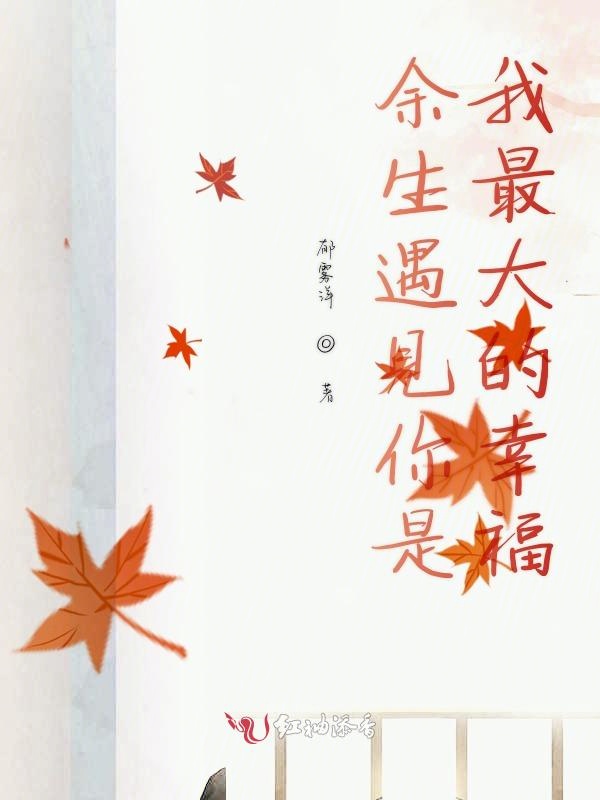 余生遇见你是
我最大的幸福
郁雾洋 ◎ 著
红袖添香